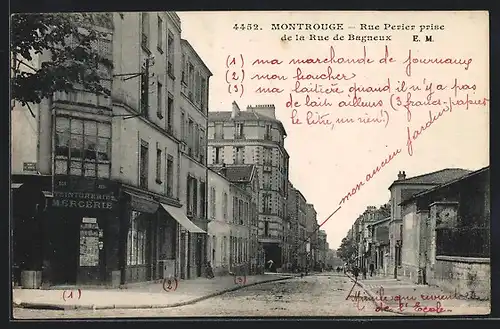 4452. MONTROUGE – Rue Perier prise
de la Rue de Bagneux E. M.
(1) ma marchande de journaux
(2) mon boucher
(3) ma laitière quand il n'y a pas
de lait ailleurs (3 grand-papier
le litre, un rien!)
mon ancien jardin
TEINTURERIE
MERCERIE
(1)
(2)
(3)
qui reviennent
de l'Ecole.